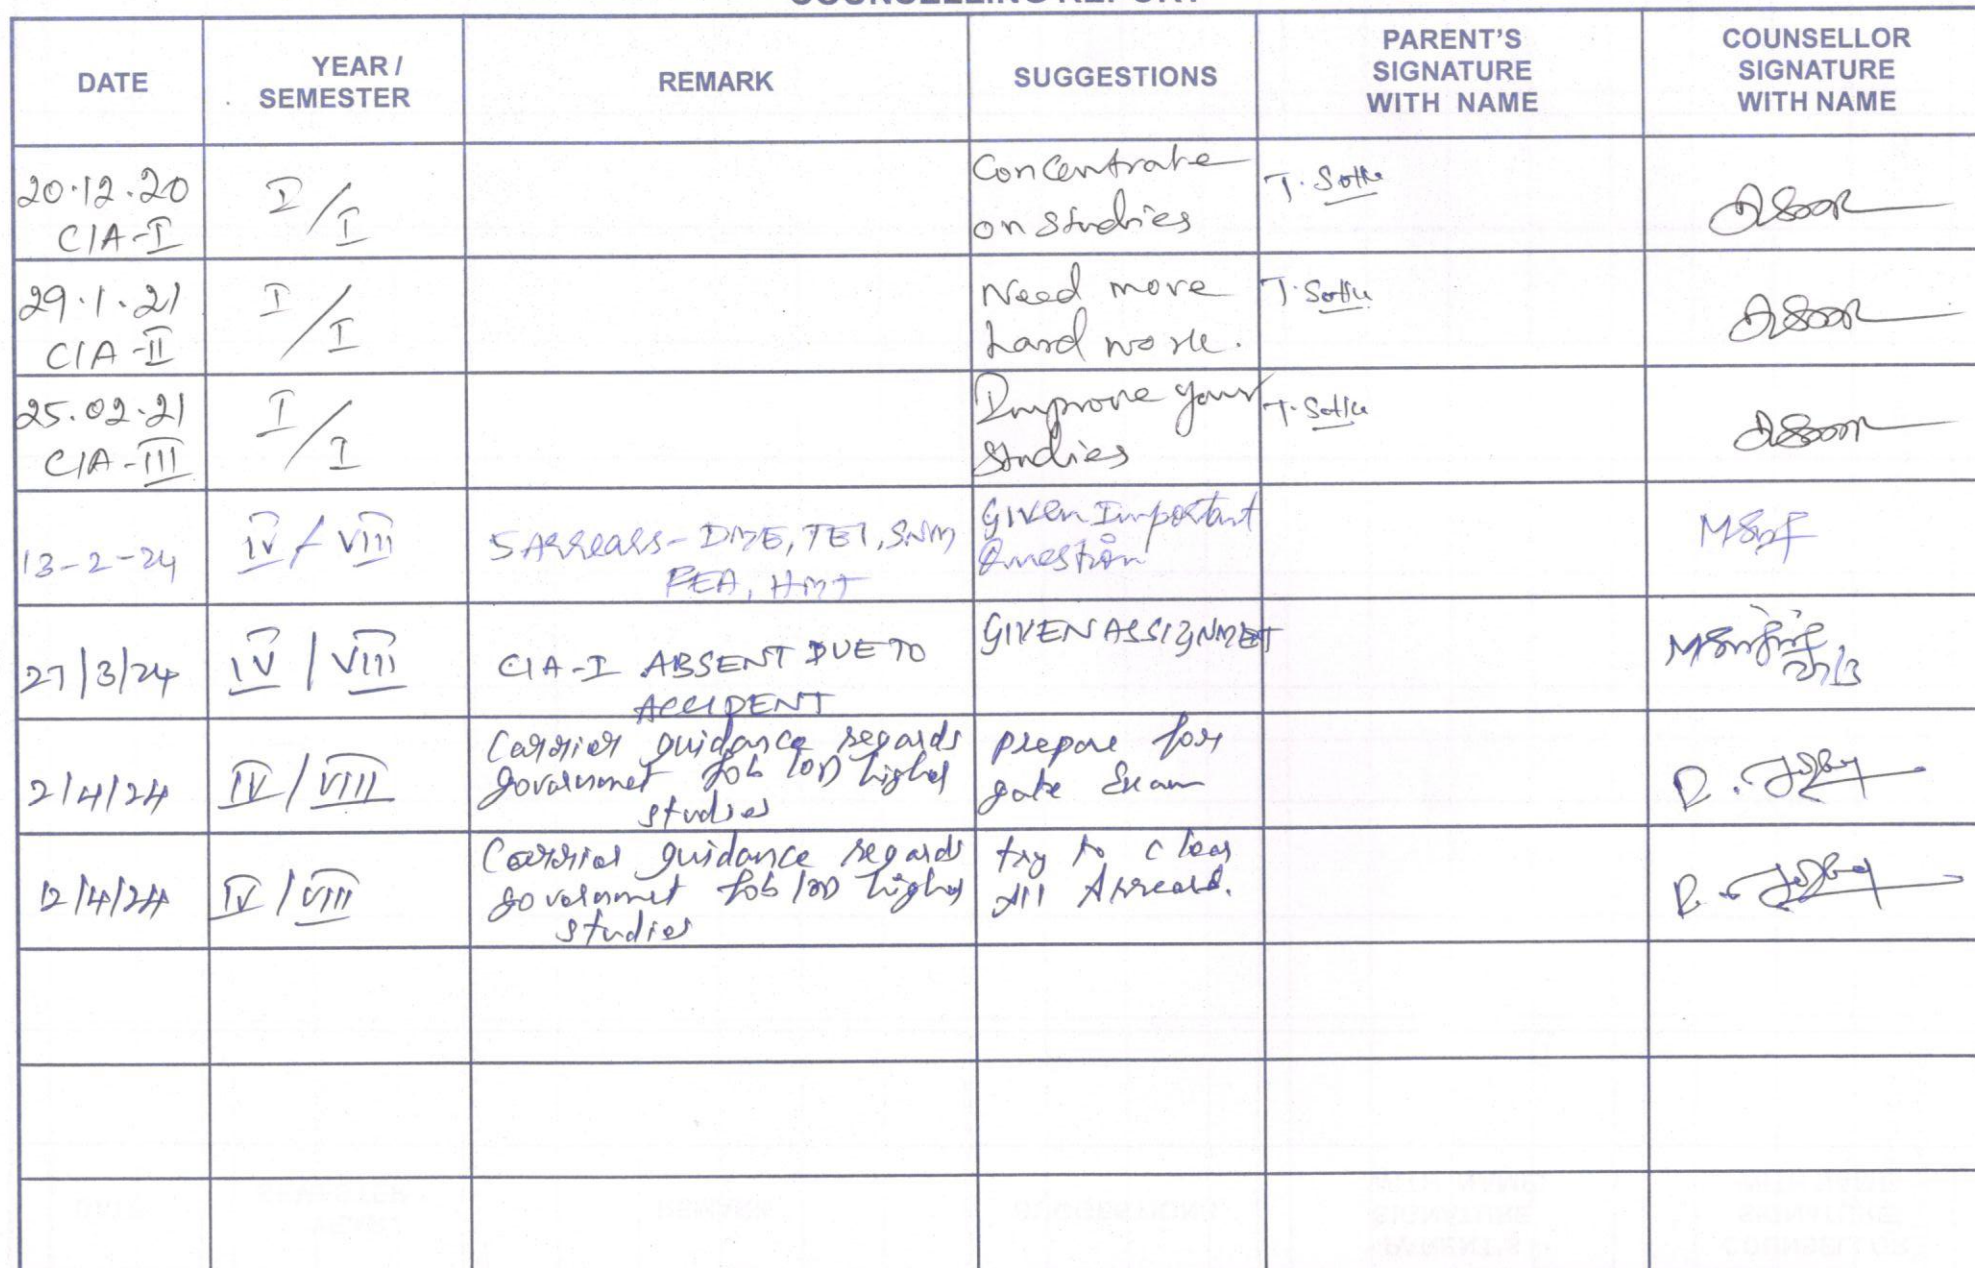 COUNSELLING REPORT
DATE
YEAR /
SEMESTER
REMARK
SUGGESTIONS
PARENT'S
SIGNATURE
WITH NAME
COUNSELLOR
SIGNATURE
WITH NAME
20.12.20
CIA-I
I/I
Concentrate
on studies
29.1.21
CIA-II
I/I
Need more
hard work.
25.02.21
CIA-III
I/I
Improve your
studies
13-2-24
IV/VIII
5 Arrears-DME, TE1, SNM
PEA, HMT
Given Important
Question
27/3/24
IV/VIII
CIA-I ABSENT DUE TO
ACCIDENT
GIVEN ASSIGNMET
27/3
2/4/24
IV/VIII
Carrier guidance regards
governmet Job (or) higher
studies
prepare for
gate Exam
12/4/24
IV/VIII
Carrier guidance regards
governmet Job (or) higher
studies
try to clear
All Arrears.